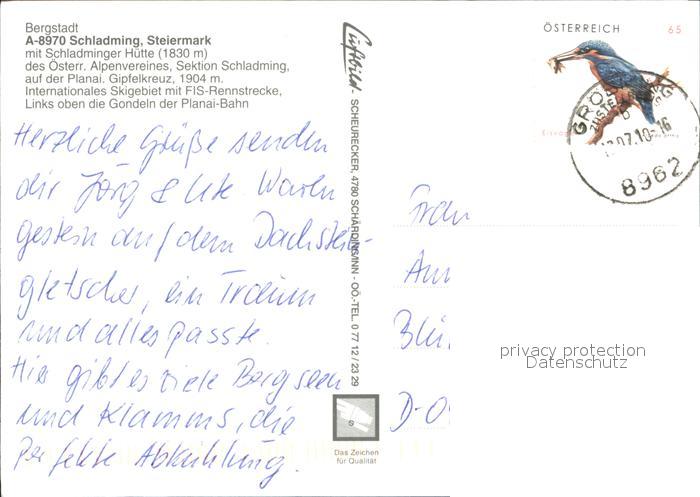 Bergstadt
A-8970 Schladming, Steiermark
mit Schladminger Hütte (1830 m)
des Österr. Alpenvereines, Sektion Schladming,
auf der Planai. Gipfelkreuz, 1904 m.
Internationales Skigebiet mit FIS-Rennstrecke,
Links oben die Gondeln der Planai-Bahn
Herzliche Grüße senden
dir Jörg & Ute. Waren
gestern auf dem Dachstein-
gletscher, ein Traum
und alles passte.
Hier gibt es viele Bergseen
und Klamms, die
perfekte Abkühlung.
Luftbild- SCHEURECKER, 4780 SCHÄRDING/INN - OÖ.-TEL. 0 77 12 / 23 29
Das Zeichen
für Qualität
ÖSTERREICH 65
GRÖ
07.10-16
8962
Frau
Blü
D-0
privacy protection
Datenschutz